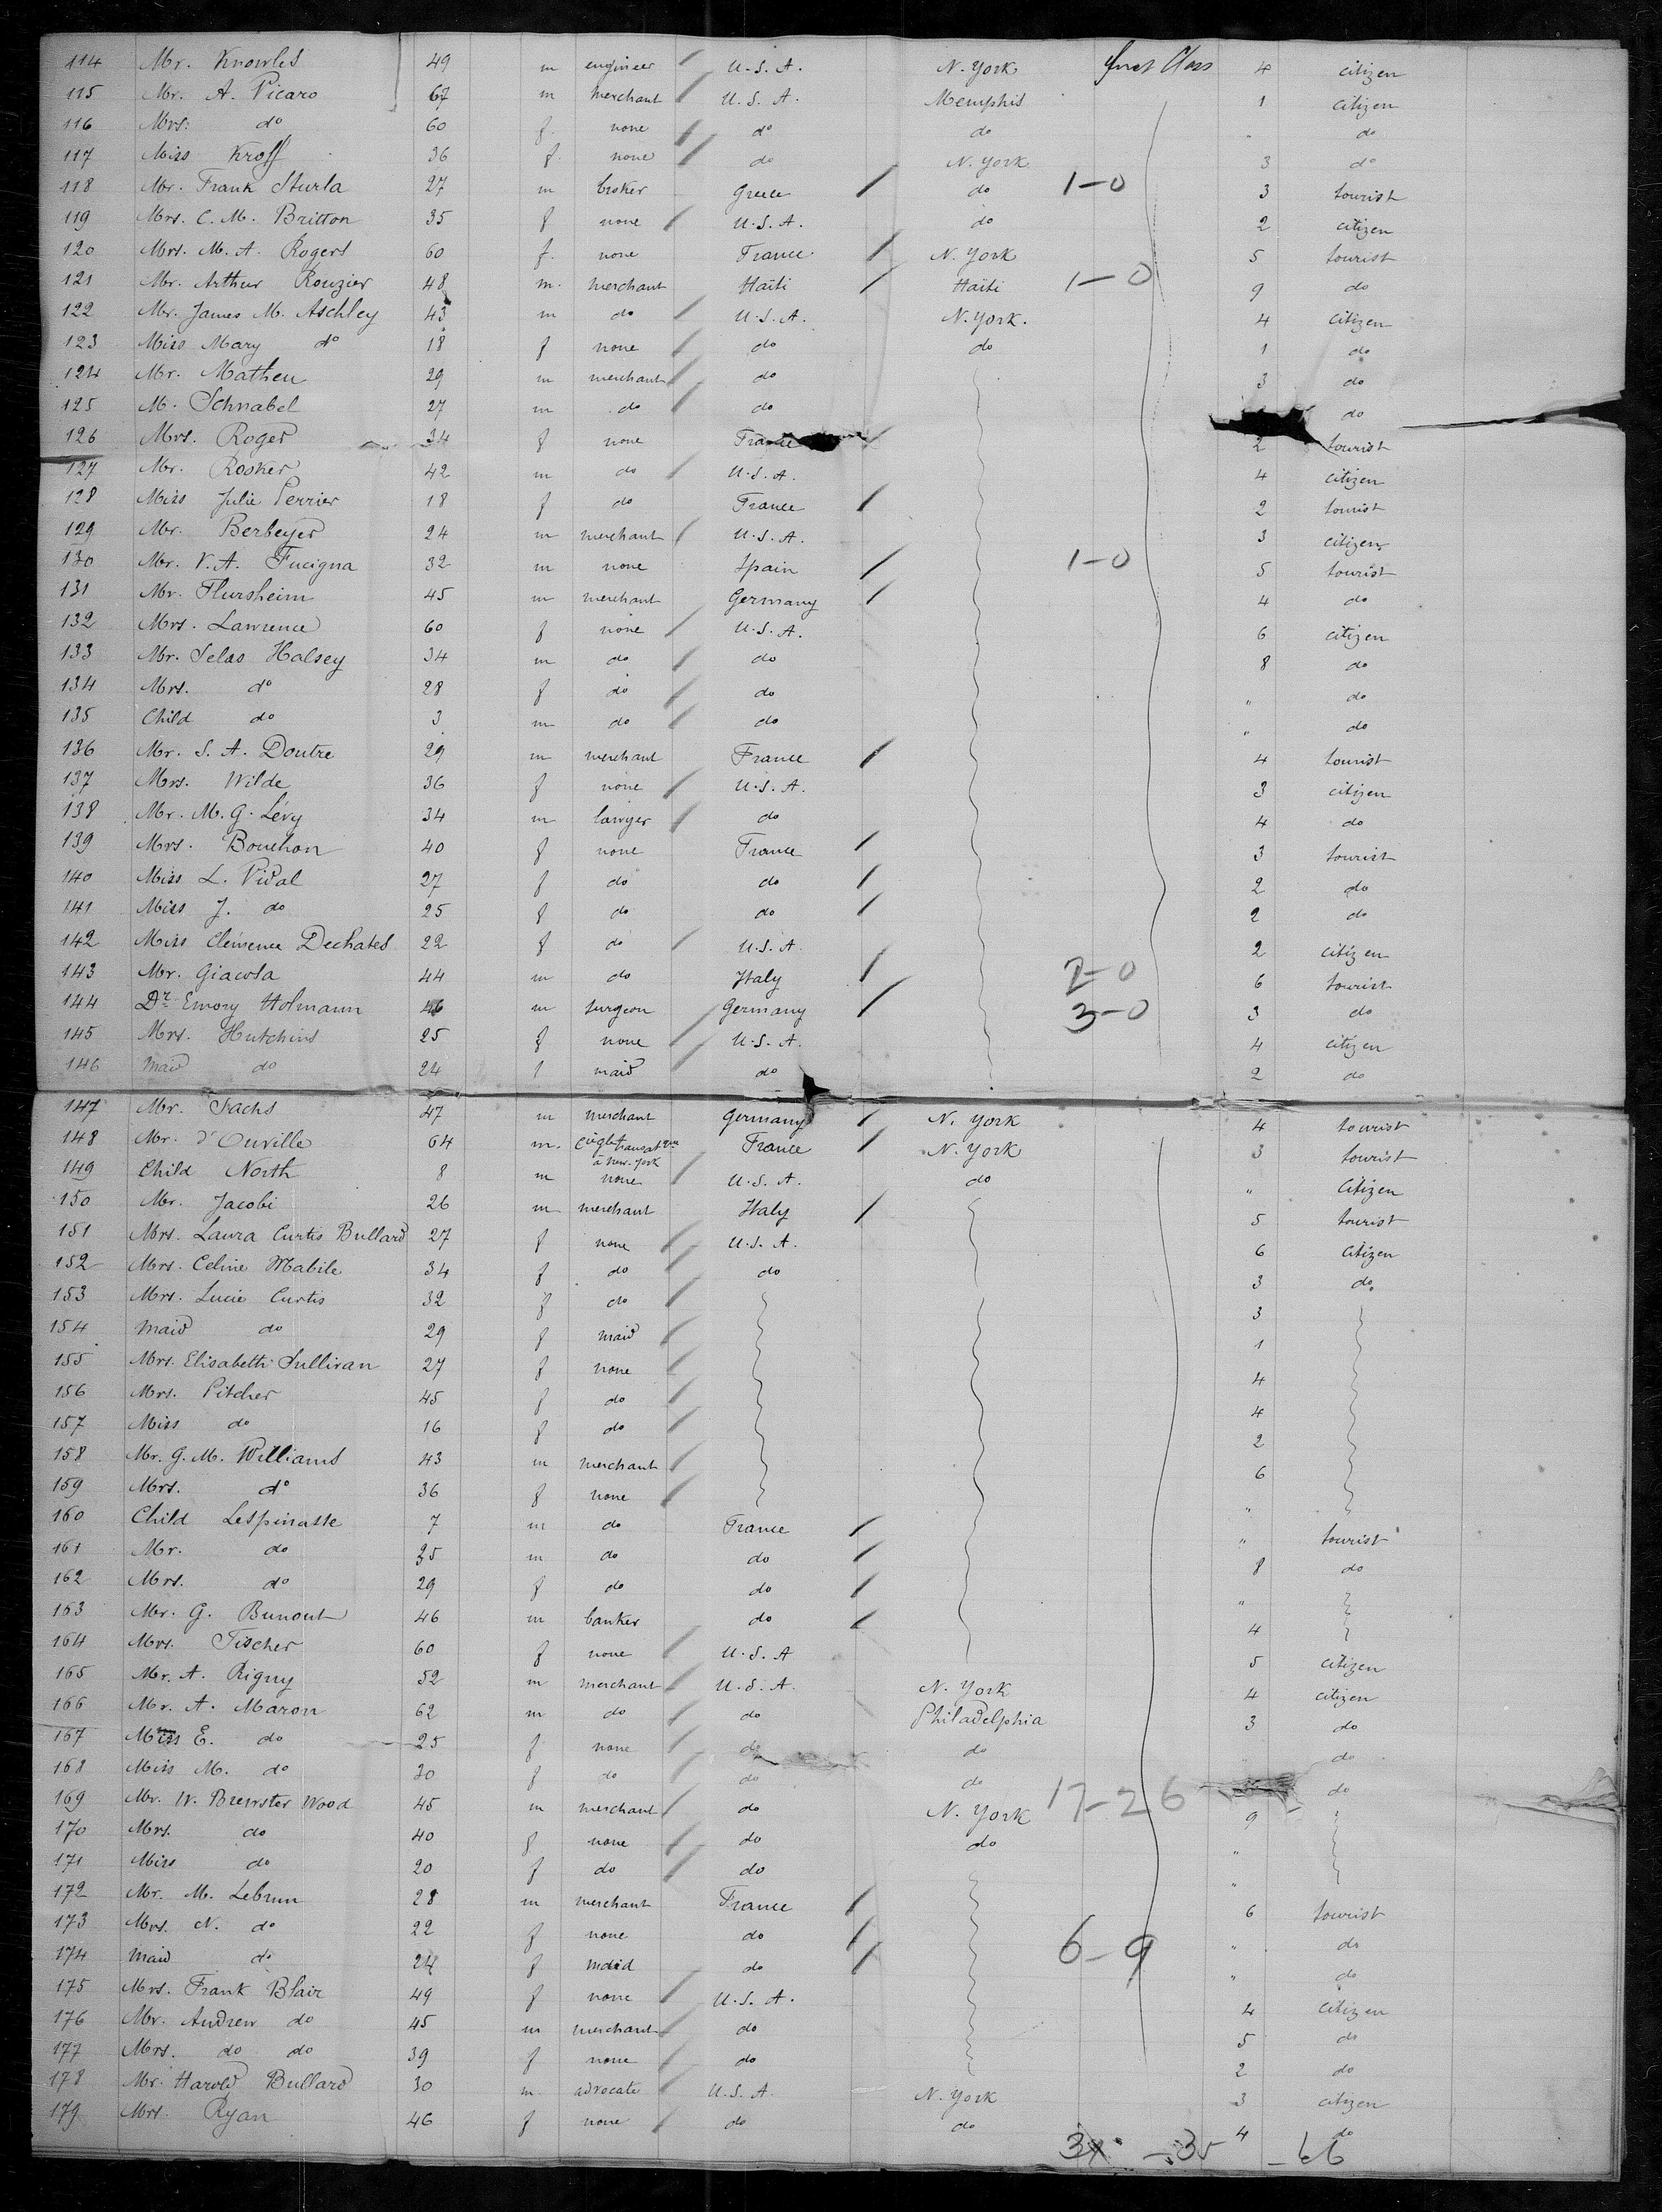 114 Mr. Knowles 49 m engineer U.S.A. N. York First Class 4 citizen
115 Mr. A. Picaro 67 m merchant U.S.A. Memphis 1 citizen
116 Mrs. do 60 f. none do do " do
117 Miss Kroff 36 f. none do N. York 3 do
118 Mr. Frank Sturla 27 m broker Greece do 1-0 3 tourist
119 Mrs. C. M. Britton 35 f none U.S.A. do 2 citizen
120 Mrs. M. A. Rogers 60 f. none France N. York 5 tourist
121 Mr. Arthur Rouzier 48 m. merchant Haïti Haïti 1-0 9 do
122 Mr. James M. Aschley 43 m do U.S.A. N. York. 4 citizen
123 Miss Mary do 18 f none do do 1 do
124 Mr. Matheu 29 m merchant do 3 do
125 M. Schnabel 27 m do do do
126 Mrs. Roger 34 f none France 2 tourist
127 Mr. Rooker 42 m do U.S.A. 4 citizen
128 Miss Julie Perrier 18 f do France 2 tourist
129 Mr. Berbeyer 24 m merchant U.S.A. 3 citizen
130 Mr. V. A. Fucigna 32 m none Spain 1-0 5 tourist
131 Mr. Flursheim 45 m merchant Germany 4 do
132 Mrs. Lawrence 60 f none U.S.A. 6 citizen
133 Mr. Selas Halsey 34 m do do 8 do
134 Mrs. do 28 f do do " do
135 Child do 3 m do do " do
136 Mr. S. A. Doutre 29 m merchant France 4 tourist
137 Mrs. Wilde 36 f none U.S.A. 3 citizen
138 Mr. M. G. Lévy 34 m lawyer do 4 do
139 Mrs. Bouchon 40 f none France 3 tourist
140 Miss L. Vidal 27 f do do 2 do
141 Miss J. do 25 f do do 2 do
142 Miss Clémence Dechates 22 f do U.S.A. 2 citizen
143 Mr. Giacosa 44 m do Italy 2-0 6 tourist
144 Dr. Emory Holmann 46 m surgeon Germany 3-0 3 do
145 Mrs. Hutchins 25 f none U.S.A. 4 citizen
146 maid do 24 f maid do 2 do
147 Mr. Sachs 47 m merchant Germany N. York 4 tourist
148 Mr. d'Ouville 64 m. France N. York 3 tourist
à New-York
149 Child North 8 m none U.S.A. do " citizen
150 Mr. Jacobi 26 m merchant Italy 5 tourist
151 Mrs. Laura Curtis Bullard 27 f none U.S.A. 6 citizen
152 Mrs. Celine Mabile 34 f do do 3 do
153 Mrs. Lucie Curtis 32 f do 3
154 maid do 29 f maid 1
155 Mrs. Elisabeth Sullivan 27 f none 4
156 Mrs. Pitcher 45 f do 4
157 Miss do 16 f do 2
158 Mr. G. M. Williams 43 m merchant 6
159 Mrs. do 36 f none "
160 Child Lespinasse 7 m do France " tourist
161 Mr. do 35 m do do 8 do
162 Mrs. do 29 f do do "
163 Mr. G. Bunout 46 m banker do 4
164 Mrs. Fischer 60 f none U.S.A 5 citizen
165 Mr. A. Rigny 52 m merchant U.S.A. N. York 4 citizen
166 Mr. A. Maron 62 m do do Philadelphia 3 do
167 E. do 25 f none do do do
168 Miss M. do 30 f do do do 17-26 do
169 Mr. W. Brewster Wood 45 m merchant do N. York 9
170 Mrs. do 40 f none do do "
171 Miss do 20 f do do "
172 Mr. M. Lebrun 28 m merchant France 6 tourist
173 Mrs. N. do 22 f none do " do
174 maid do 24 f maid do 6-9 " do
175 Mrs. Frank Blair 49 f none U.S.A. 4 citizen
176 Mr. Andrew do 45 m merchant do 5 do
177 Mrs. do do 39 f none do 2 do
178 Mr. Harold Bullard 30 m advocate U.S.A. N. York 3 citizen
179 Mrs. Ryan 46 f none do do 4 do
- 35 - 66